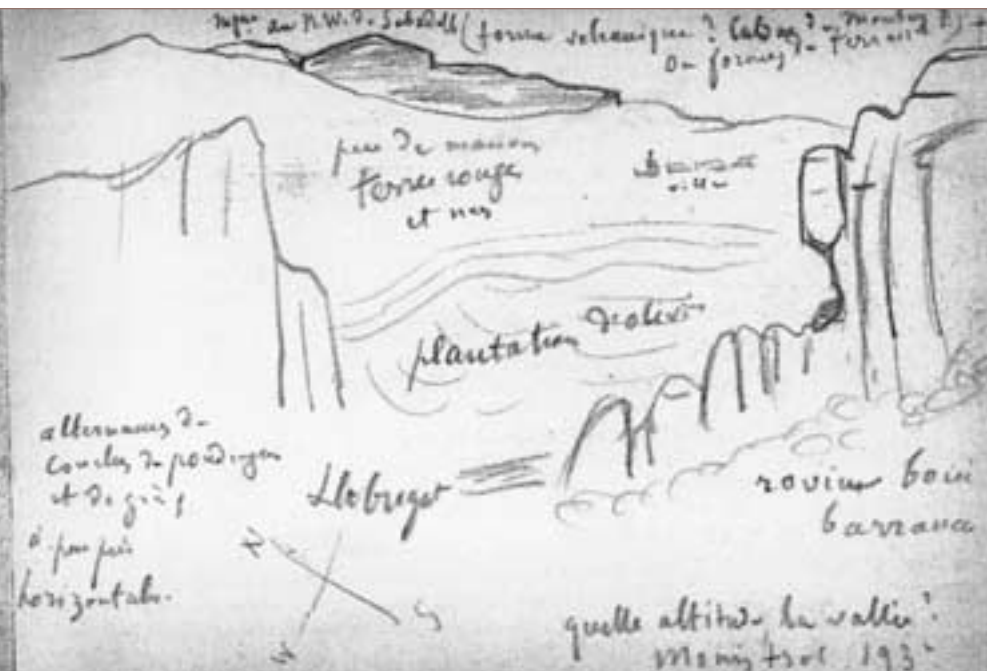 au N.W. de Sabadell (forme volcanique ?
ou formes
peu de maisons
terre rouge
et
ville
plantation d'oliviers
alternances de
couches de poudingues
et de grès
à peu près
horizontales.
Llobregat
N
S
ravins bois
barranca
quelle altitude la vallée ?
Monistrol 193